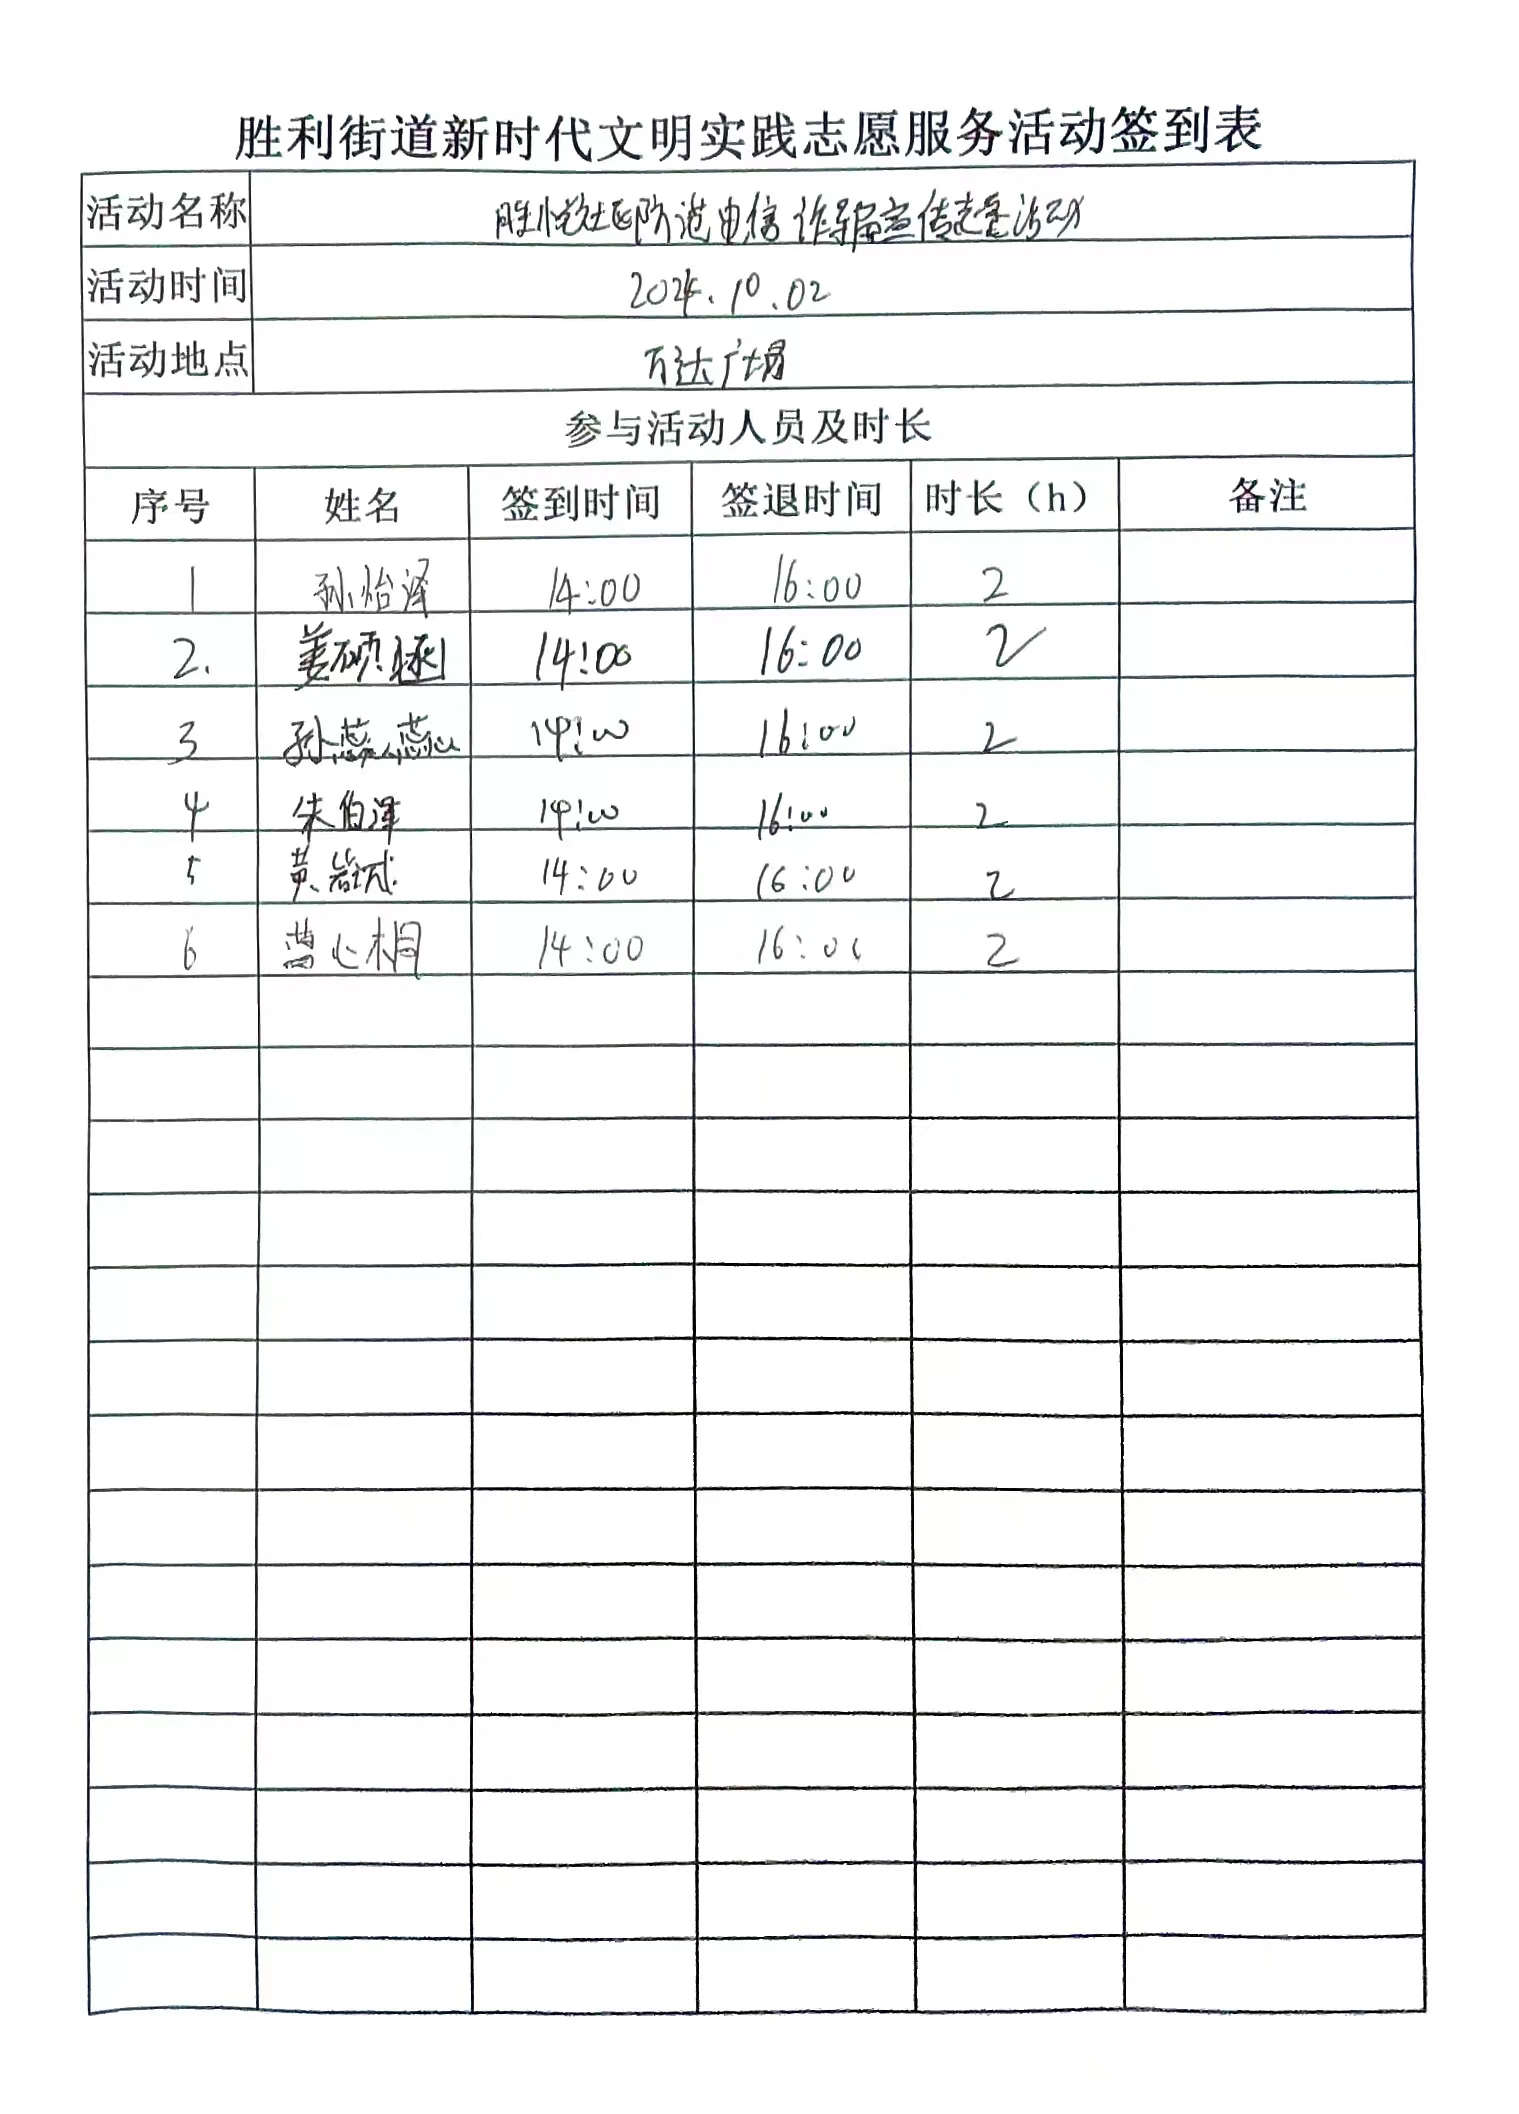 胜利街道新时代文明实践志愿服务活动签到表
活动名称 胜悦社区防范电信诈骗宣传志愿活动
活动时间 2024.10.02
活动地点 万达广场
参与活动人员及时长
序号 姓名 签到时间 签退时间 时长（h） 备注
1 孙怡泽 14:00 16:00 2
2. 姜硕 14:00 16:00 2
3 孙蕊蕊 14:00 16:00 2
4 朱伯泽 14:00 16:00 2
5 黄 14:00 16:00 2
6 心桐 14:00 16:00 2